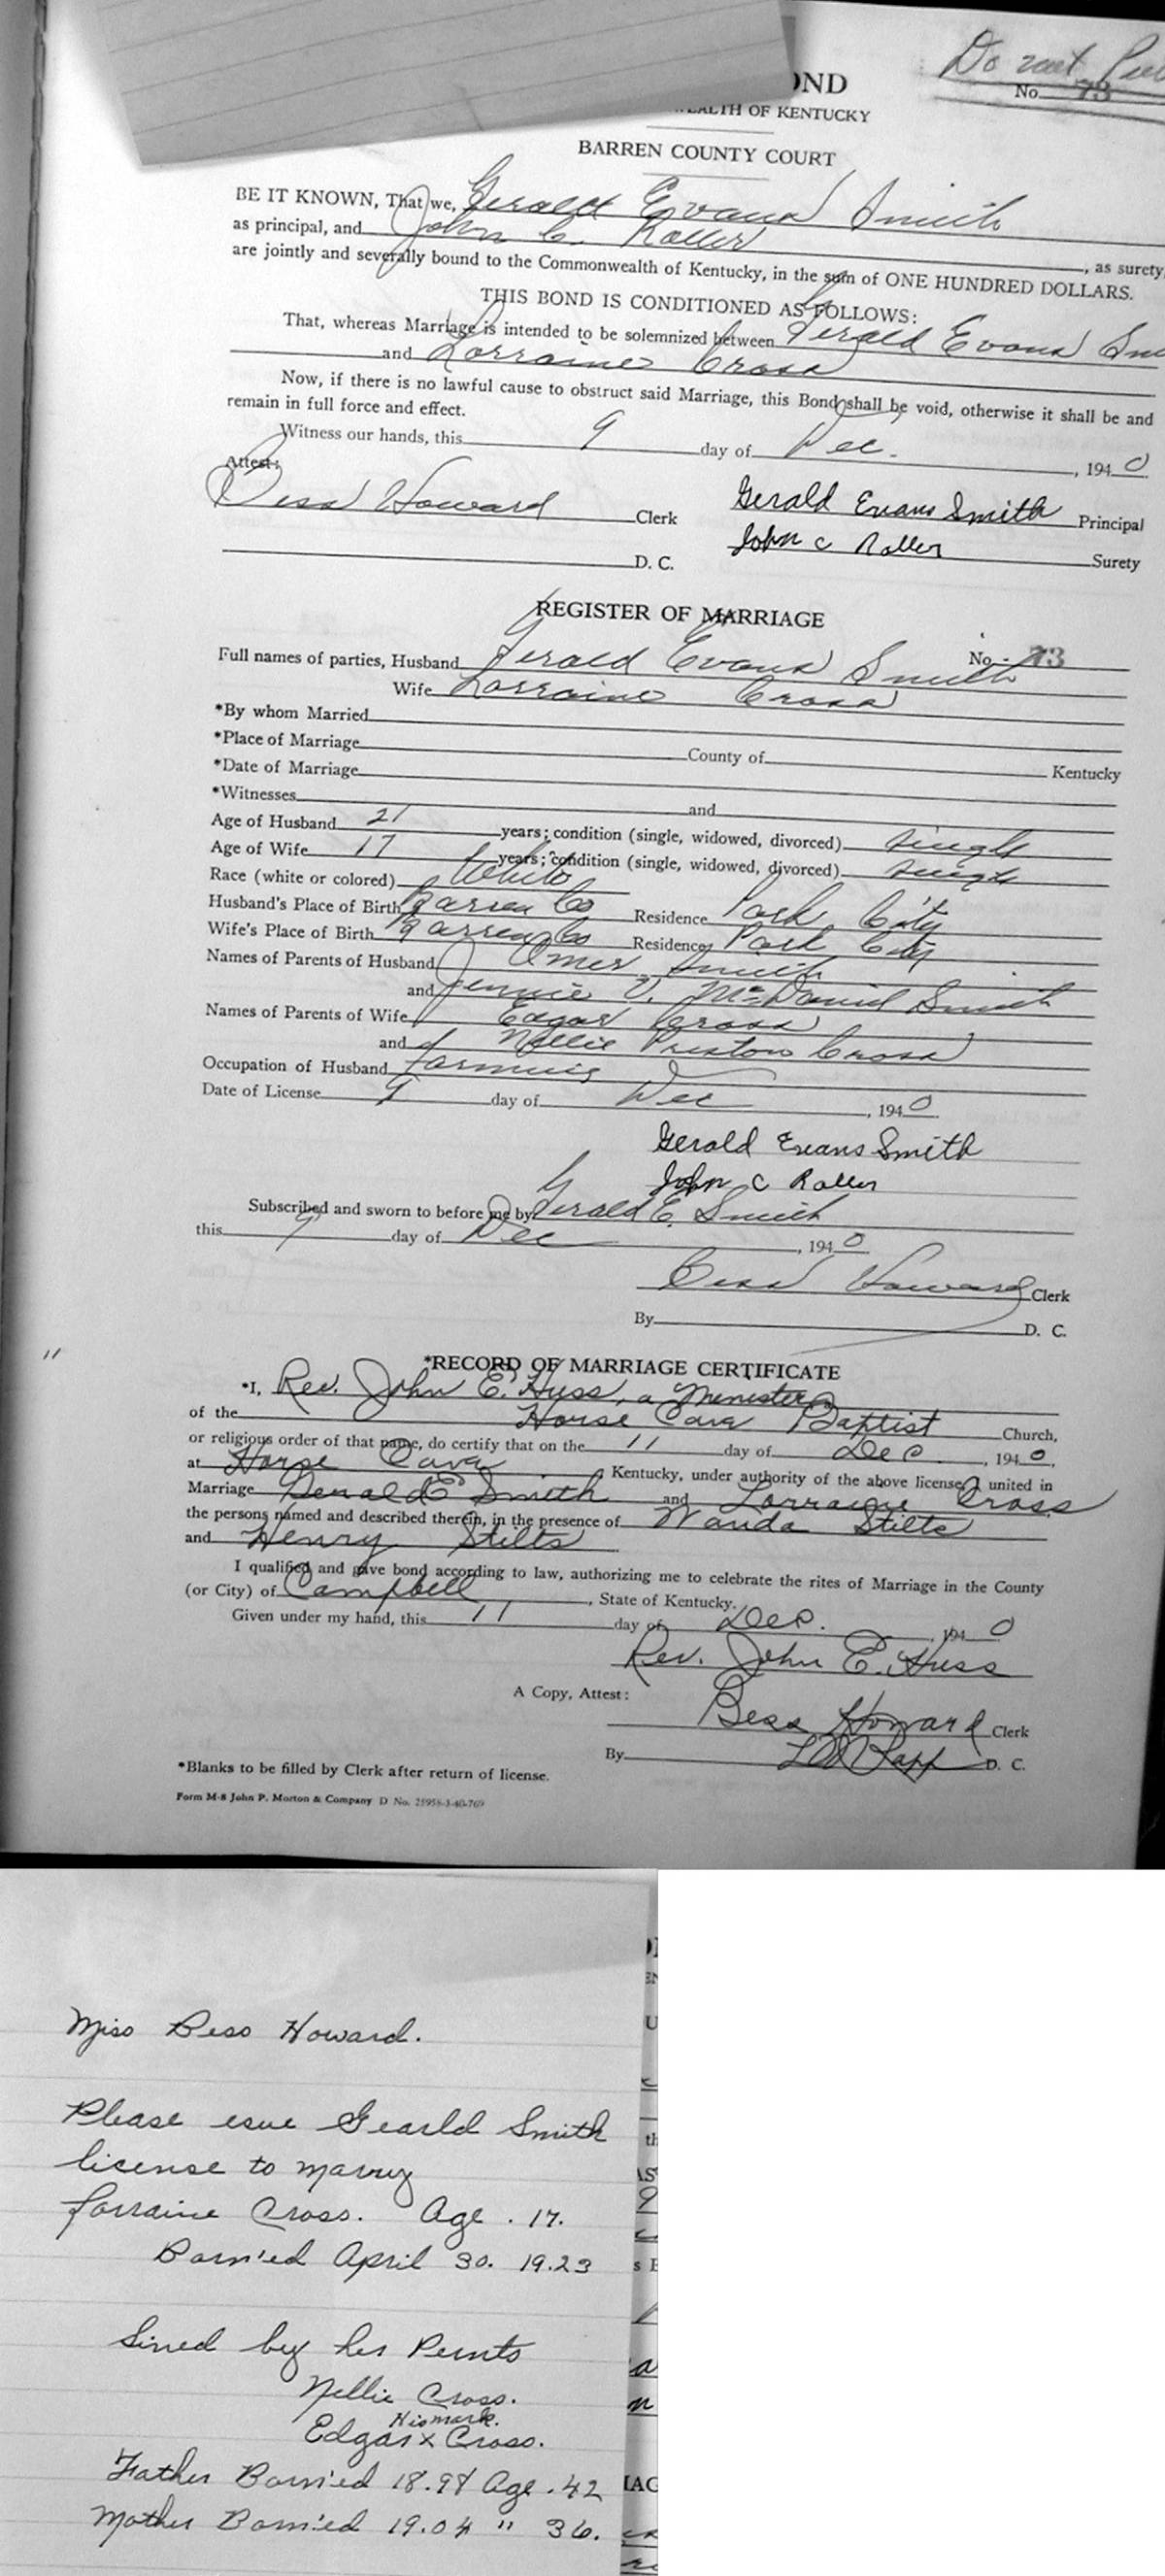 Do not Pu
OND
WEALTH OF KENTUCKY
No. 73
BARREN COUNTY COURT
BE IT KNOWN, That we, Gerald Evans Smith
as principal, and John C. Roller, as surety,
are jointly and severally bound to the Commonwealth of Kentucky, in the sum of ONE HUNDRED DOLLARS.
THIS BOND IS CONDITIONED AS FOLLOWS:
That, whereas Marriage is intended to be solemnized between Gerald Evans Sm
and Lorraine Cross
Now, if there is no lawful cause to obstruct said Marriage, this Bond shall be void, otherwise it shall be and
remain in full force and effect.
Witness our hands, this 9 day of Dec., 1940
Attest:
Bess Howard Clerk Gerald Evans Smith Principal
D. C. John C Roller Surety
REGISTER OF MARRIAGE
No. 73
Full names of parties, Husband Gerald Evans Smith
Wife Lorraine Cross
*By whom Married
*Place of Marriage County of Kentucky
*Date of Marriage
*Witnesses and
Age of Husband 21 years; condition (single, widowed, divorced) single
Age of Wife 17 years; condition (single, widowed, divorced) single
Race (white or colored) White
Husband's Place of Birth Barren Co Residence Park City
Wife's Place of Birth Barren Co Residence Park City
Names of Parents of Husband Omer Smith
and Jennie V. McDaniel Smith
Names of Parents of Wife Edgar Cross
and Nellie Preston Cross
Occupation of Husband farming
Date of License 9 day of Dec, 1940
Gerald Evans Smith
John C Roller
Subscribed and sworn to before me by Gerald E. Smith
this 9 day of Dec, 1940
Bess Howard Clerk
By D. C.
"
*RECORD OF MARRIAGE CERTIFICATE
*I, Rev. John E. Huss, a Minister
of the Horse Cave Baptist Church,
or religious order of that name, do certify that on the 11 day of Dec, 1940,
at Horse Cave, Kentucky, under authority of the above license, I united in
Marriage Gerald E Smith and Lorraine Cross
the persons named and described therein, in the presence of Wanda Stilts
and Henry Stilts
I qualified and gave bond according to law, authorizing me to celebrate the rites of Marriage in the County
(or City) of Campbell, State of Kentucky.
Given under my hand, this 11 day of Dec., 1940
Rev. John E. Huss
A Copy, Attest:
Bess Howard Clerk
By Rapp D. C.
*Blanks to be filled by Clerk after return of license.
Form M-8 John P. Morton & Company D No. 25958-3-40-769
Miss Bess Howard.
Please esue Gearld Smith
license to marry
Lorraine Cross. Age. 17.
Born'ed April 30. 19.23
Sined by her Pernts
Nellie Cross.
His mark.
Edgar x Cross.
Father Born'ed 18.98 Age. 42
Mother Born'ed 19.04 " 36.